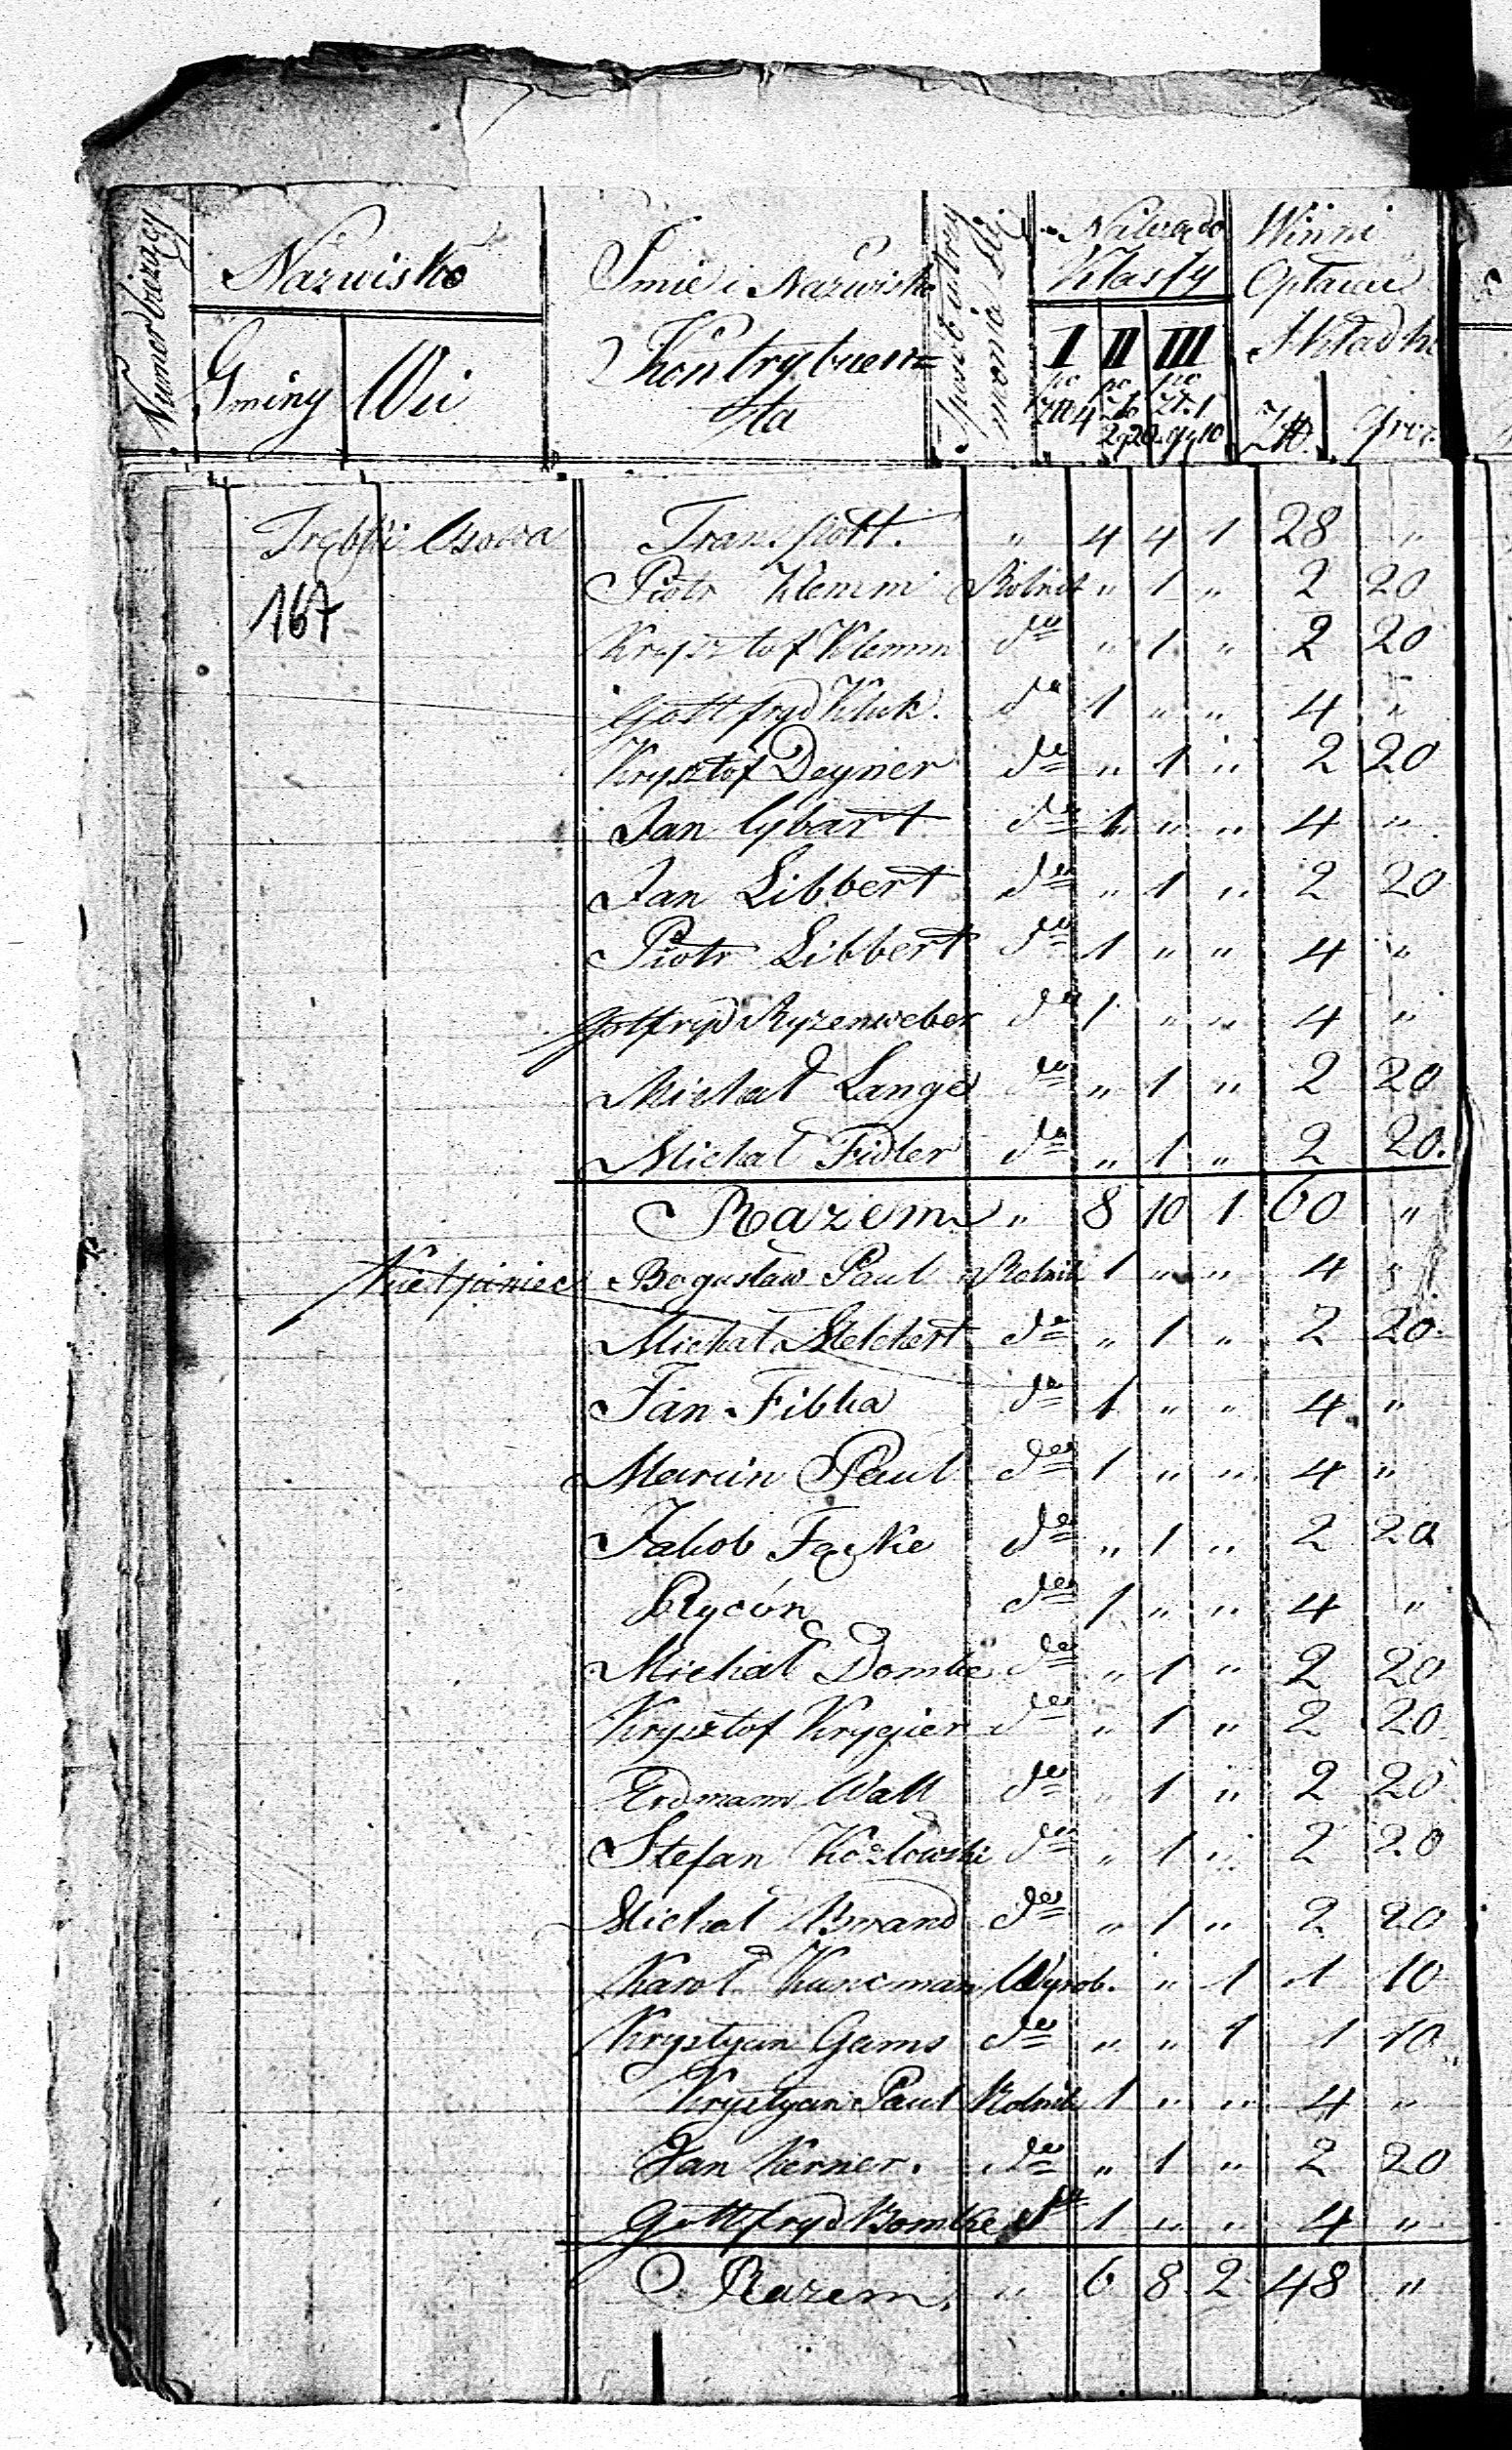 Numer bieżący
Nazwisko
Gminy Wsi
Imie i Nazwisko
Kontrybuen=
ta
Sposób utrzy
mania się
Należą do
Klassy
I II III
po po po
Zł 4 Zł Zł. 1
2 g 20 gr 10
Winni
Opłacać
Składki
Zł. grosz.
Trębki Osowa Transport. " 4 4 1 28 "
167 Piotr Klemm Rolnik " 1 " 2 20
Krysztof Klemm dto " 1 " 2 20
Gottfryd Kluk. dto 1 " " 4 "
Krysztof Deyner dto " 1 " 2 20
Jan Cybart dto 1 " " 4 "
Jan Libbert dto " 1 " 2 20
Piotr Libbert dto 1 " " 4 "
Gottfryd Ryzenweber dto 1 " " 4 "
Michał Lange dto " 1 " 2 20
Michał Fidler dto " 1 " 2 20.
Razem " 8 10 1 60 "
Bogusław Paul Rolnik 1 " " 4 "
Michał Melchert dto " 1 " 2 20
Jan Fibka dto 1 " " 4 "
Marcin Paul dto 1 " " 4 "
Jakob dto " 1 " 2 20
Rycón dto 1 " " 4 "
Michał Domke dto " 1 " 2 20
Krysztof Krygier dto " 1 " 2 20
Erdmann Wall dto " 1 " 2 20
Stefan Kozłowski dto " 1 " 2 20
Michał Brand dto " 1 " 2 20
Karol Kuncman Wyrob. " 1 1 10
Krystyan Gams dto " " 1 1 10
Krystyan Paul Rolnik 1 " " 4 "
Jan Kerner. dto " 1 " 2 20
Gottfryd Bomke dto 1 " " 4 "
Razem. " 6 8 2 48 "